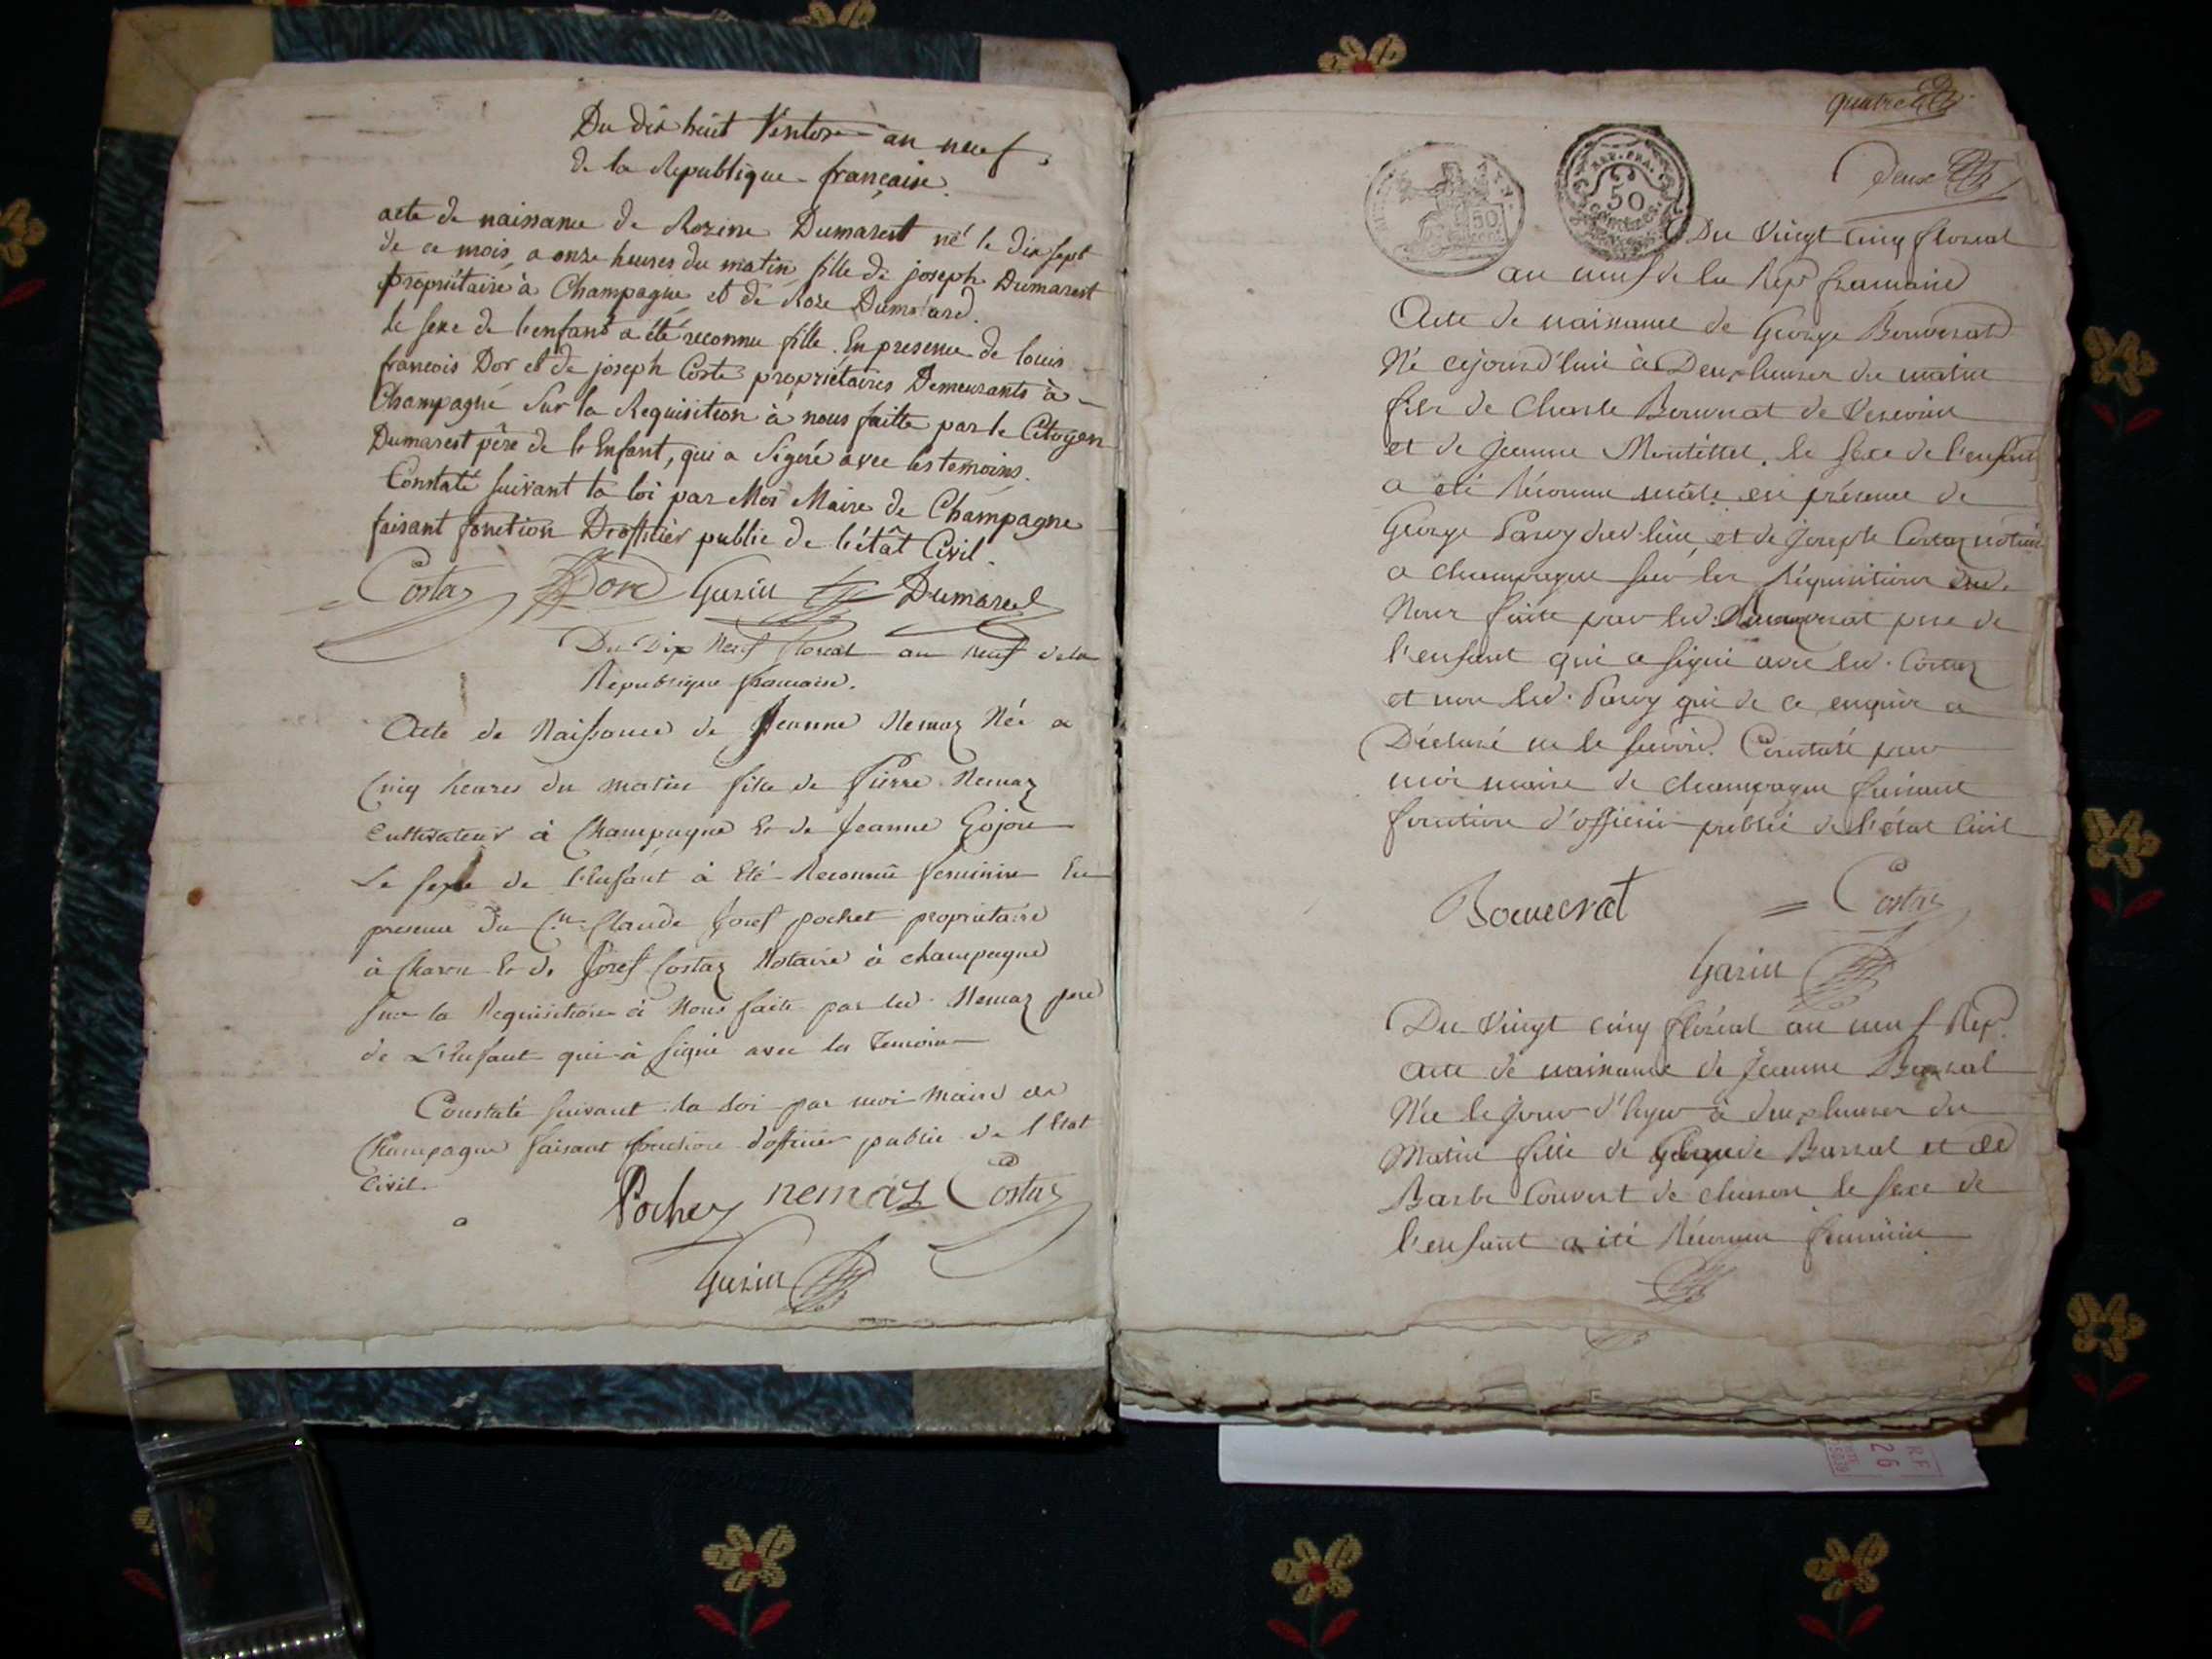 Du dix huit Ventose an neuf
de la Republique française.
acte de naissance de Rozine Dumarest né le dix sept
de ce mois, a onze heures du matin, fille de joseph Dumarest
propriétaire à Champagne et de Roze Dumolard.
le sexe de l'enfant a été reconnu fille. En presence de louis
francois Dor et de joseph Coste propriétaires Demeurants à
Champagne Sur la Requisition à nous faitte par le Citoyen
Dumarest père de l'Enfant, qui a Signé avec les temoins.
Constaté suivant la loi par Moi Maire de Champagne
faisant fonction D'officier public de l'étât Civil.
Costaz Dord Garin Dumarest
Du Dix Neuf floreal an neuf de la
Republique francaise.
Acte de Naissance de Jeanne Nemoz Née a
Cinq heures du matin fille de Pierre Nemoz
Cultivateur à Champagne & de Jeanne Gojon
Le sexe de l'Enfant à Eté Reconnu feminin En
presence du Cn. Claude Josef pochet propriétaire
à Charon & de Josef Costaz Notaire à champagne
sur la Requisition à Nous faite par led. Nemoz pere
de L'Enfant qui à signé avec les Temoins
Constaté suivant la Loi par moi Maire de
Champagne faisant fonction d'officier public de l'Etat
Civil.
Pochet nemoz Costaz
Garin
quatre
deux
REP. FRA.
50
50
Du Vingt Cinq floreal
an neuf de la Rep. francaise
Acte de naissance de George Bouverat
Né cejourd'hui à Deux heures du matin
fils de Charle Bouverat de
et de Jeanne Montillet. le sexe de l'enfant
a été Réconnu mâle en présence de
George Parvy dud. lieu, et de Joseph Costaz notaire
a champagne sur les Réquisitions
Nous faite par led. Bouverat pere de
l'enfant qui a signé avec led. Costaz
et non led. Parvy qui de ce enquis a
Déclaré ne le savoir. Constaté par
moi maire de champagne faisant
fonction d'officier public de l'état Civil
Bouverat = Costaz
Garin
Du Vingt cinq floréal an neuf Rep.
acte de naissance de Jeanne
Née le Jour d'hyer à deux heures du
Matin fille de et de
Barbe Couvert de le sexe de
l'enfant a été Réconnu feminin
R.F
26